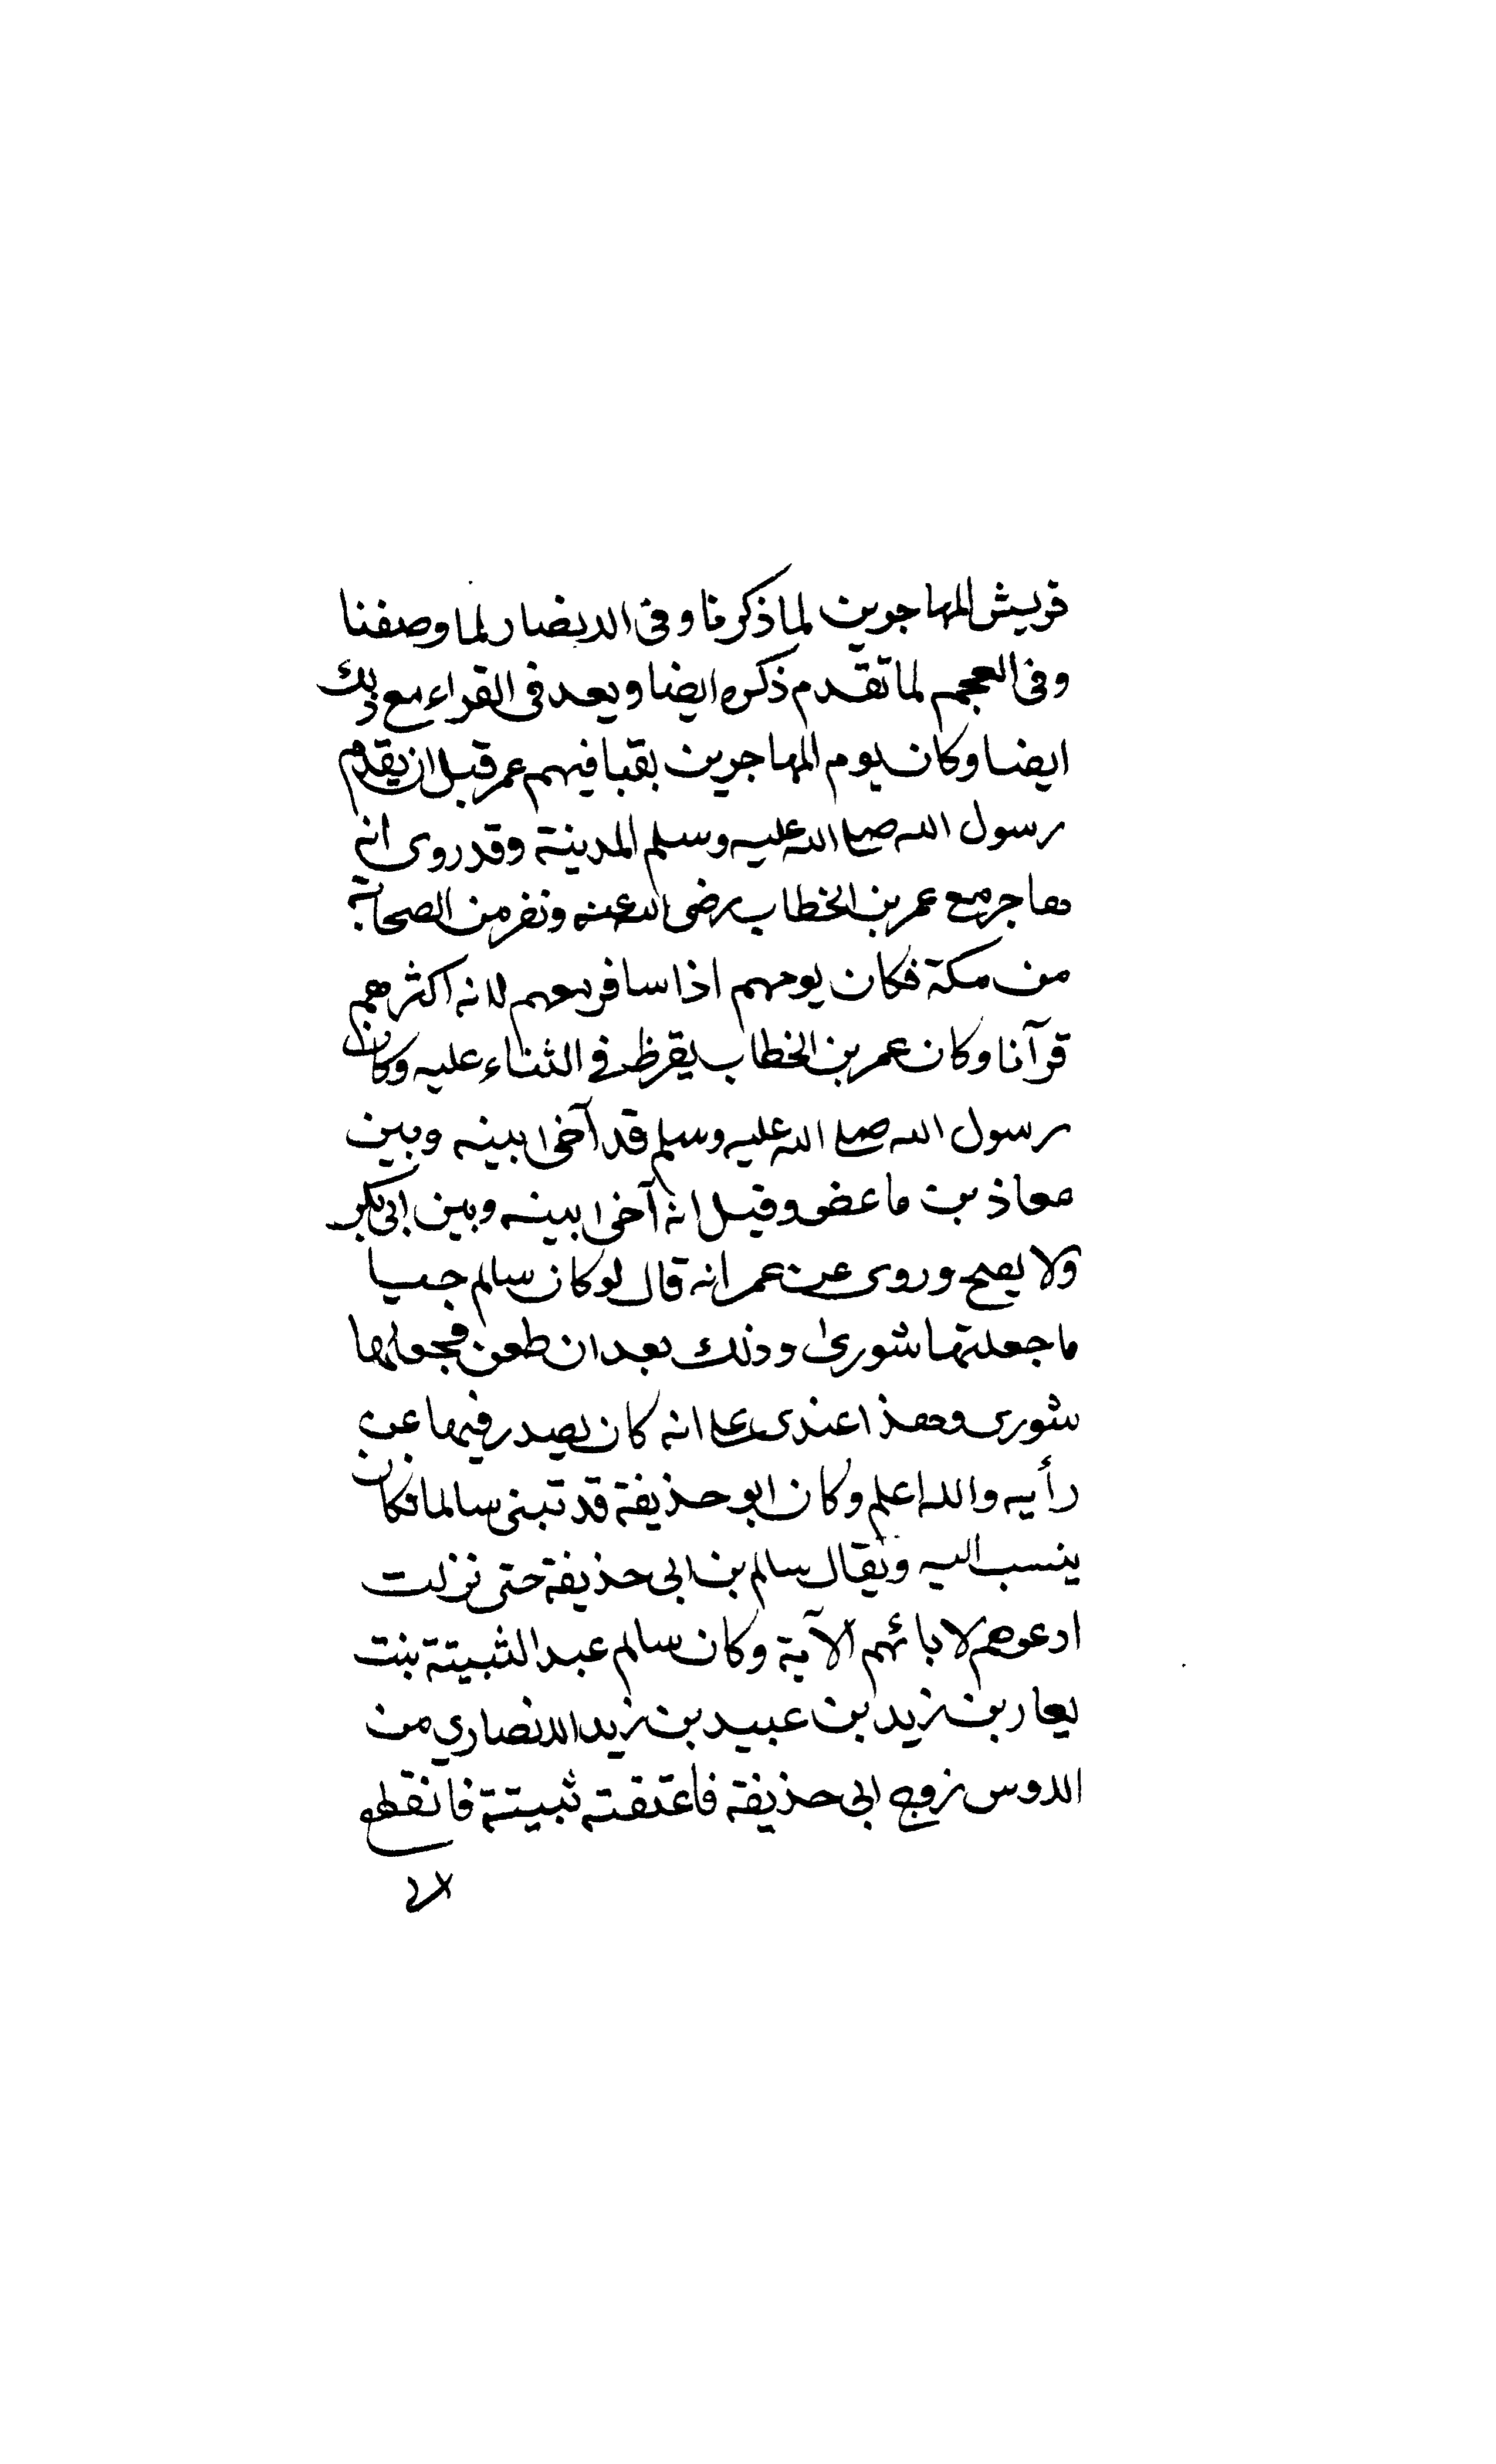 قريش المهاجرين لما ذكرنا وفى الانصار لما وصفنا
وفى العجم لما تقدم ذكره ايضا ويعد فى القراء مع ذلك
ايضا وكان يوم المهاجرين بقبا فيهم عمر قبل ان يقدم
رسول الله صلى الله عليه وسلم المدينة وقد روى انه
هاجر مع عمر بن الخطاب رضى الله عنه ونفر من الصحابة
من مكة فكان يومهم اذا سافر معهم لانه اكثرهم
قرآنا وكان عمر بن الخطاب يقرظ فى الثناء عليه وكان
رسول الله صلى الله عليه وسلم قد آخى بينه وبين
معاذ بن ماعض وقيل انه آخى بينه وبين ابى بكر
ولا يصح وروى عن عمر انه قال لو كان سالم حيا
ما جعلتها شورى وذلك بعد ان طعن فجعلها
شورى وهذا عندى على انه كان يصدر فيها عن
رأيه والله اعلم وكان ابو حذيفة قد تبنى سالما فكان
ينسب اليه ويقال سالم بن ابى حذيفة حتى نزلت
ادعوهم لابائهم الآية وكان سالم عبد الثبيتة بنت
يعار بن زيد بن عبيد بن زيد الانصاري من
الاوس زوج ابى حذيفة فاعتقته ثبيتة فانقطع
الى